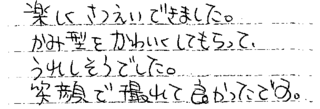 楽しくさつえいできました。
かみ型をかわいくしてもらって、
うれしそうでした。
笑顔で撮れて良かったです。